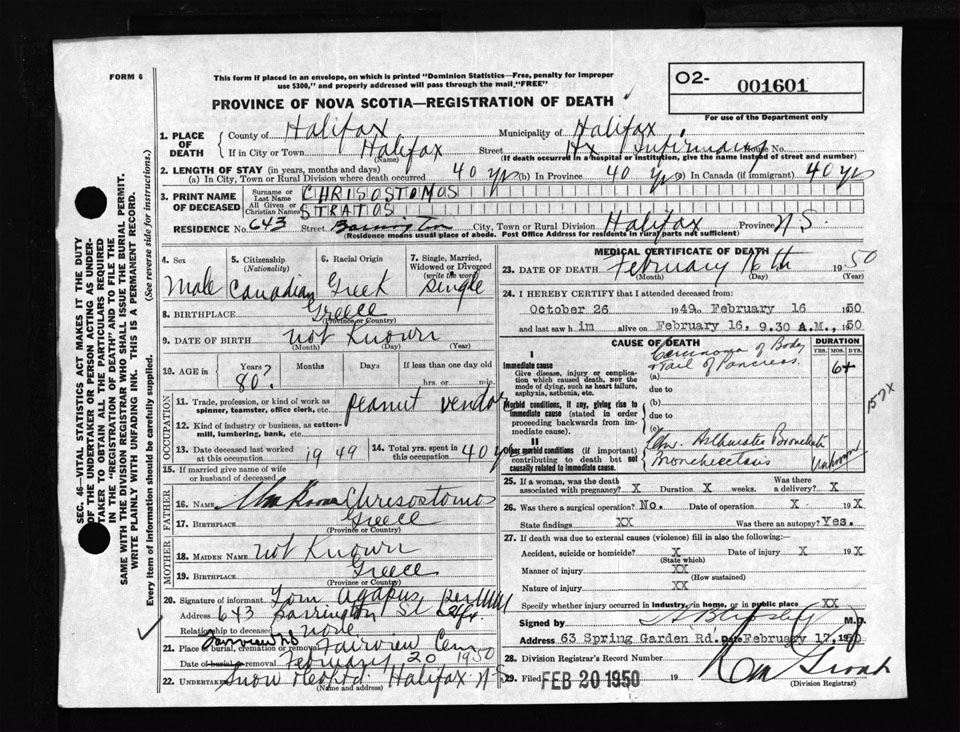 FORM 6
This form if placed in an envelope, on which is printed "Dominion Statistics—Free, penalty for improper
use $300," and properly addressed will pass through the mail "FREE"
O2- 001601
For use of the Department only
PROVINCE OF NOVA SCOTIA—REGISTRATION OF DEATH
1. PLACE OF DEATH { County of Halifax Municipality of Halifax
If in City or Town Halifax Street Hx Infirmary House No.
(Name) (If death occurred in a hospital or institution, give the name instead of street and number)
2. LENGTH OF STAY (in years, months and days)
(a) In City, Town or Rural Division where death occurred 40 yrs (b) In Province 40 yrs (c) In Canada (if immigrant) 40 yrs
3. PRINT NAME OF DECEASED
Surname or Last Name CHRISOSTOMOS
All Given or Christian Names STRATOS
RESIDENCE No. 643 Street Barrington City, Town or Rural Division Halifax Province N.S.
(Residence means usual place of abode. Post Office Address for residents in rural parts not sufficient)
4. Sex Male
5. Citizenship (Nationality) Canadian
6. Racial Origin Greek
7. Single, Married, Widowed or Divorced (write the word) Single
8. BIRTHPLACE Greece
(Province or Country)
9. DATE OF BIRTH Not Known
(Month) (Day) (Year)
10. AGE in { Years Months Days If less than one day old
80? hrs. or min.
OCCUPATION
11. Trade, profession, or kind of work as spinner, teamster, office clerk, etc. Peanut vendor
12. Kind of industry or business, as cotton-mill, lumbering, bank, etc.
13. Date deceased last worked at this occupation 1949
14. Total yrs. spent in this occupation 40 yrs
15. If married give name of wife or husband of deceased
FATHER
16. NAME Chrisostomos
17. BIRTHPLACE Greece
(Province or Country)
MOTHER
18. MAIDEN NAME Not Known
19. BIRTHPLACE Greece
(Province or Country)
20. Signature of informant Tom Agapus
Address 643 Barrington St Hfx.
Relationship to deceased none
21. Place of burial, cremation or removal Fairview Cem
Fairview
Date of burial removal February 20 1950
22. Undertaker Snow & Co Ltd. Halifax N.S.
(Name and address)
MEDICAL CERTIFICATE OF DEATH
23. DATE OF DEATH February 16th 1950
(Month) (Day) (Year)
24. I HEREBY CERTIFY that I attended deceased from:
October 26 1949 to February 16 1950
and last saw him alive on February 16, 9.30 A.M., 1950
CAUSE OF DEATH
DURATION
YRS. MOS. DYS.
I
Immediate cause
Give disease, injury or complication which caused death, NOT the mode of dying, such as heart failure, asphyxia, asthenia, etc.
(a) Carcinoma of Body
Tail of Pancreas 6+
due to
Morbid conditions, if any, giving rise to immediate cause (stated in order proceeding backwards from immediate cause).
(b)
due to
(c)
II
Other morbid conditions (if important) contributing to death but not causally related to immediate cause.
Chr. Asthmatic Bronchitis
Bronchiectasis Unknown
157X
25. If a woman, was the death associated with pregnancy? X Duration X weeks. Was there a delivery? X
26. Was there a surgical operation? No. Date of operation X 19X
State findings XX Was there an autopsy? Yes.
27. If death was due to external causes (violence) fill in also the following:—
Accident, suicide or homicide? X Date of injury X 19X
(State which)
Manner of injury XX
(How sustained)
Nature of injury XX
Specify whether injury occurred in Industry, in home, or in public place XX
Signed by M.D.
Address 63 Spring Garden Rd. Date February 17, 1950
28. Division Registrar's Record Number
29. Filed FEB 20 1950 19
(Division Registrar)
SEC. 46—VITAL STATISTICS ACT MAKES IT THE DUTY
OF THE UNDERTAKER OR PERSON ACTING AS UNDER-
TAKER TO OBTAIN ALL THE PARTICULARS REQUIRED
IN THE "REGISTRATION OF DEATH" AND TO FILE THE
SAME WITH THE DIVISION REGISTRAR WHO SHALL ISSUE THE BURIAL PERMIT.
WRITE PLAINLY WITH UNFADING INK. THIS IS A PERMANENT RECORD.
Every item of information should be carefully supplied. (See reverse side for instructions.)